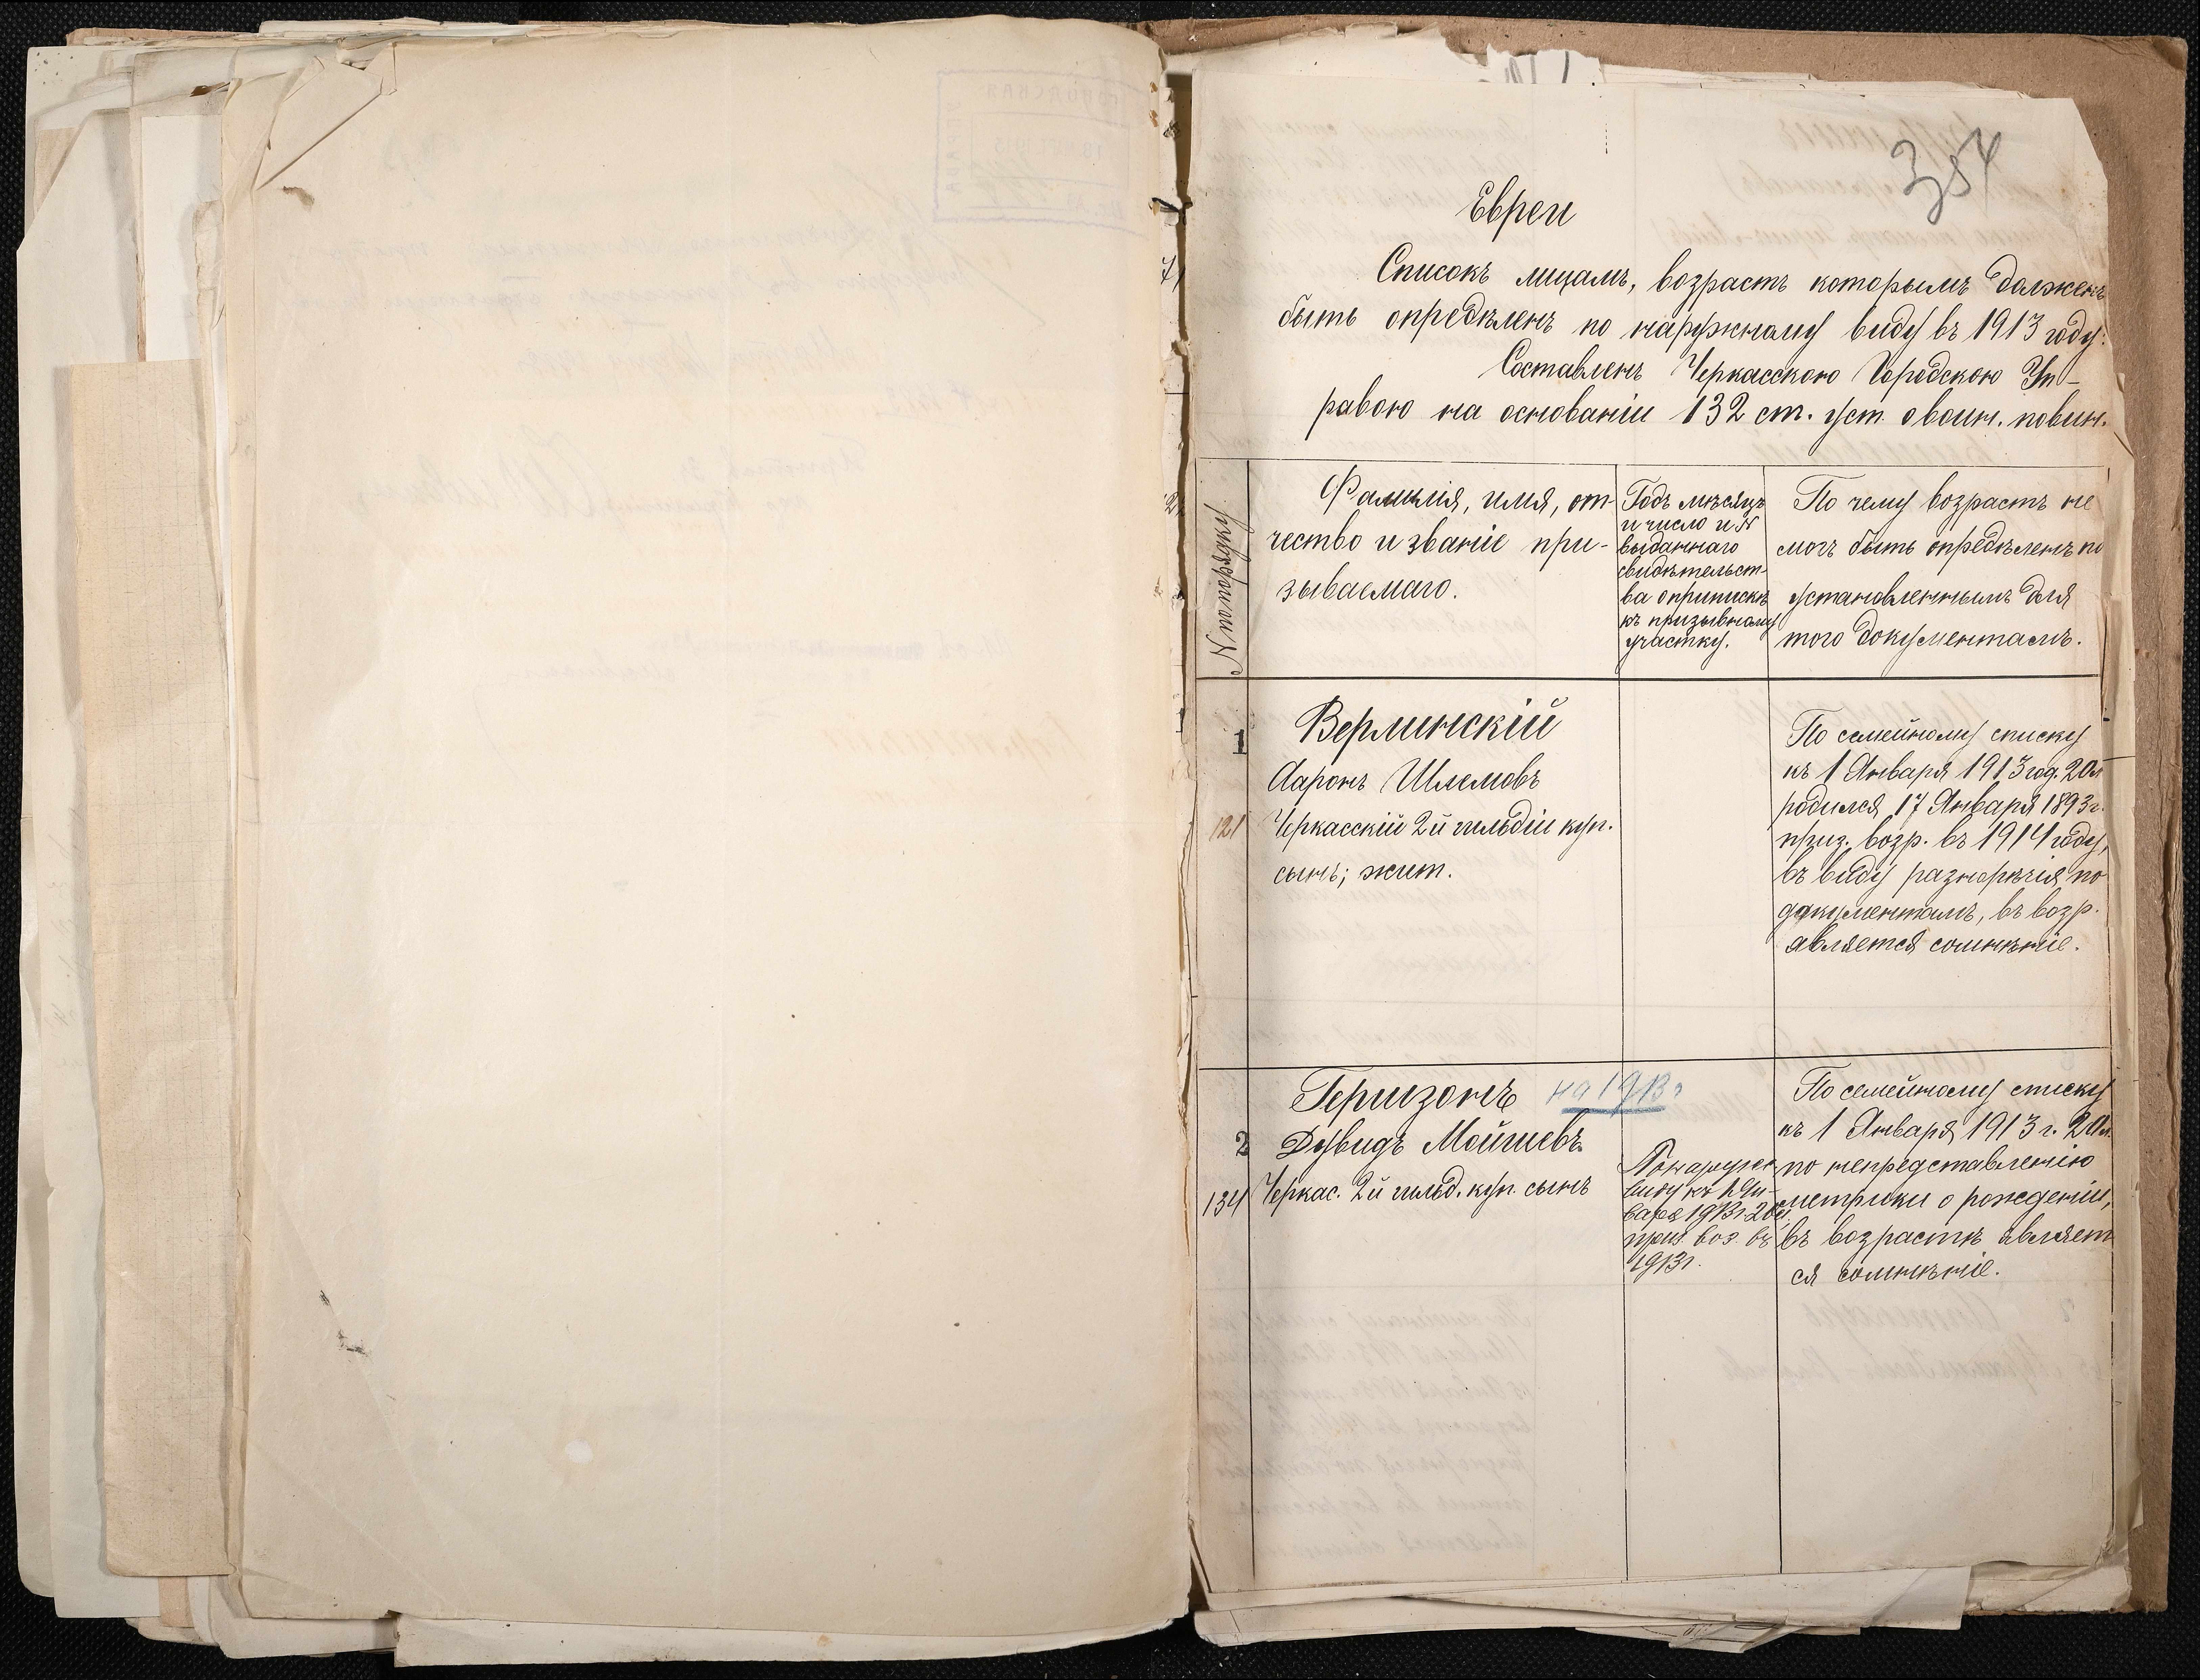 354
Евреи
Списокъ лицамъ, возрастъ которымъ долженъ
быть опредѣленъ по наружному виду въ 1913 году.
Составленъ Черкасскою Городскою Уп-
равою на основаніи 132 ст. уст. о воин. повин.
№ по порядку
Фамилія, имя, от-
чество и званіе при-
зываемаго.
Годъ мѣсяцъ
и число и №
выданнаго
свидѣтельст-
ва о припискѣ
къ призывному
участку.
По чему возрастъ не
могъ быть опредѣленъ по
установленнымъ для
того документамъ.
1
Верлинскій
Ааронъ Шлемовъ
121
Черкасскій 2й гильдіи куп.
сынъ; жит.
По семейному списку
къ 1 Января 1913 год. 20 л
родился 17 Января 1893 г.
приз. возр. въ 1914 году,
въ виду разнорѣчія по
документамъ, въ возр.
является сомнѣніе.
Гершзонъ на 1913 г
2
Дувидъ Мойшевъ
134
Черкас. 2й гильд. куп. сынъ
По наружн
виду къ 1 Ян-
варя 1913 г. 20 л.
приз. воз. въ
1913 г.
По семейному списку
къ 1 Января 1913 г. 20 л.
по непредставленію
метрики о рожденіи,
въ возрастѣ являет
ся сомнѣніе.